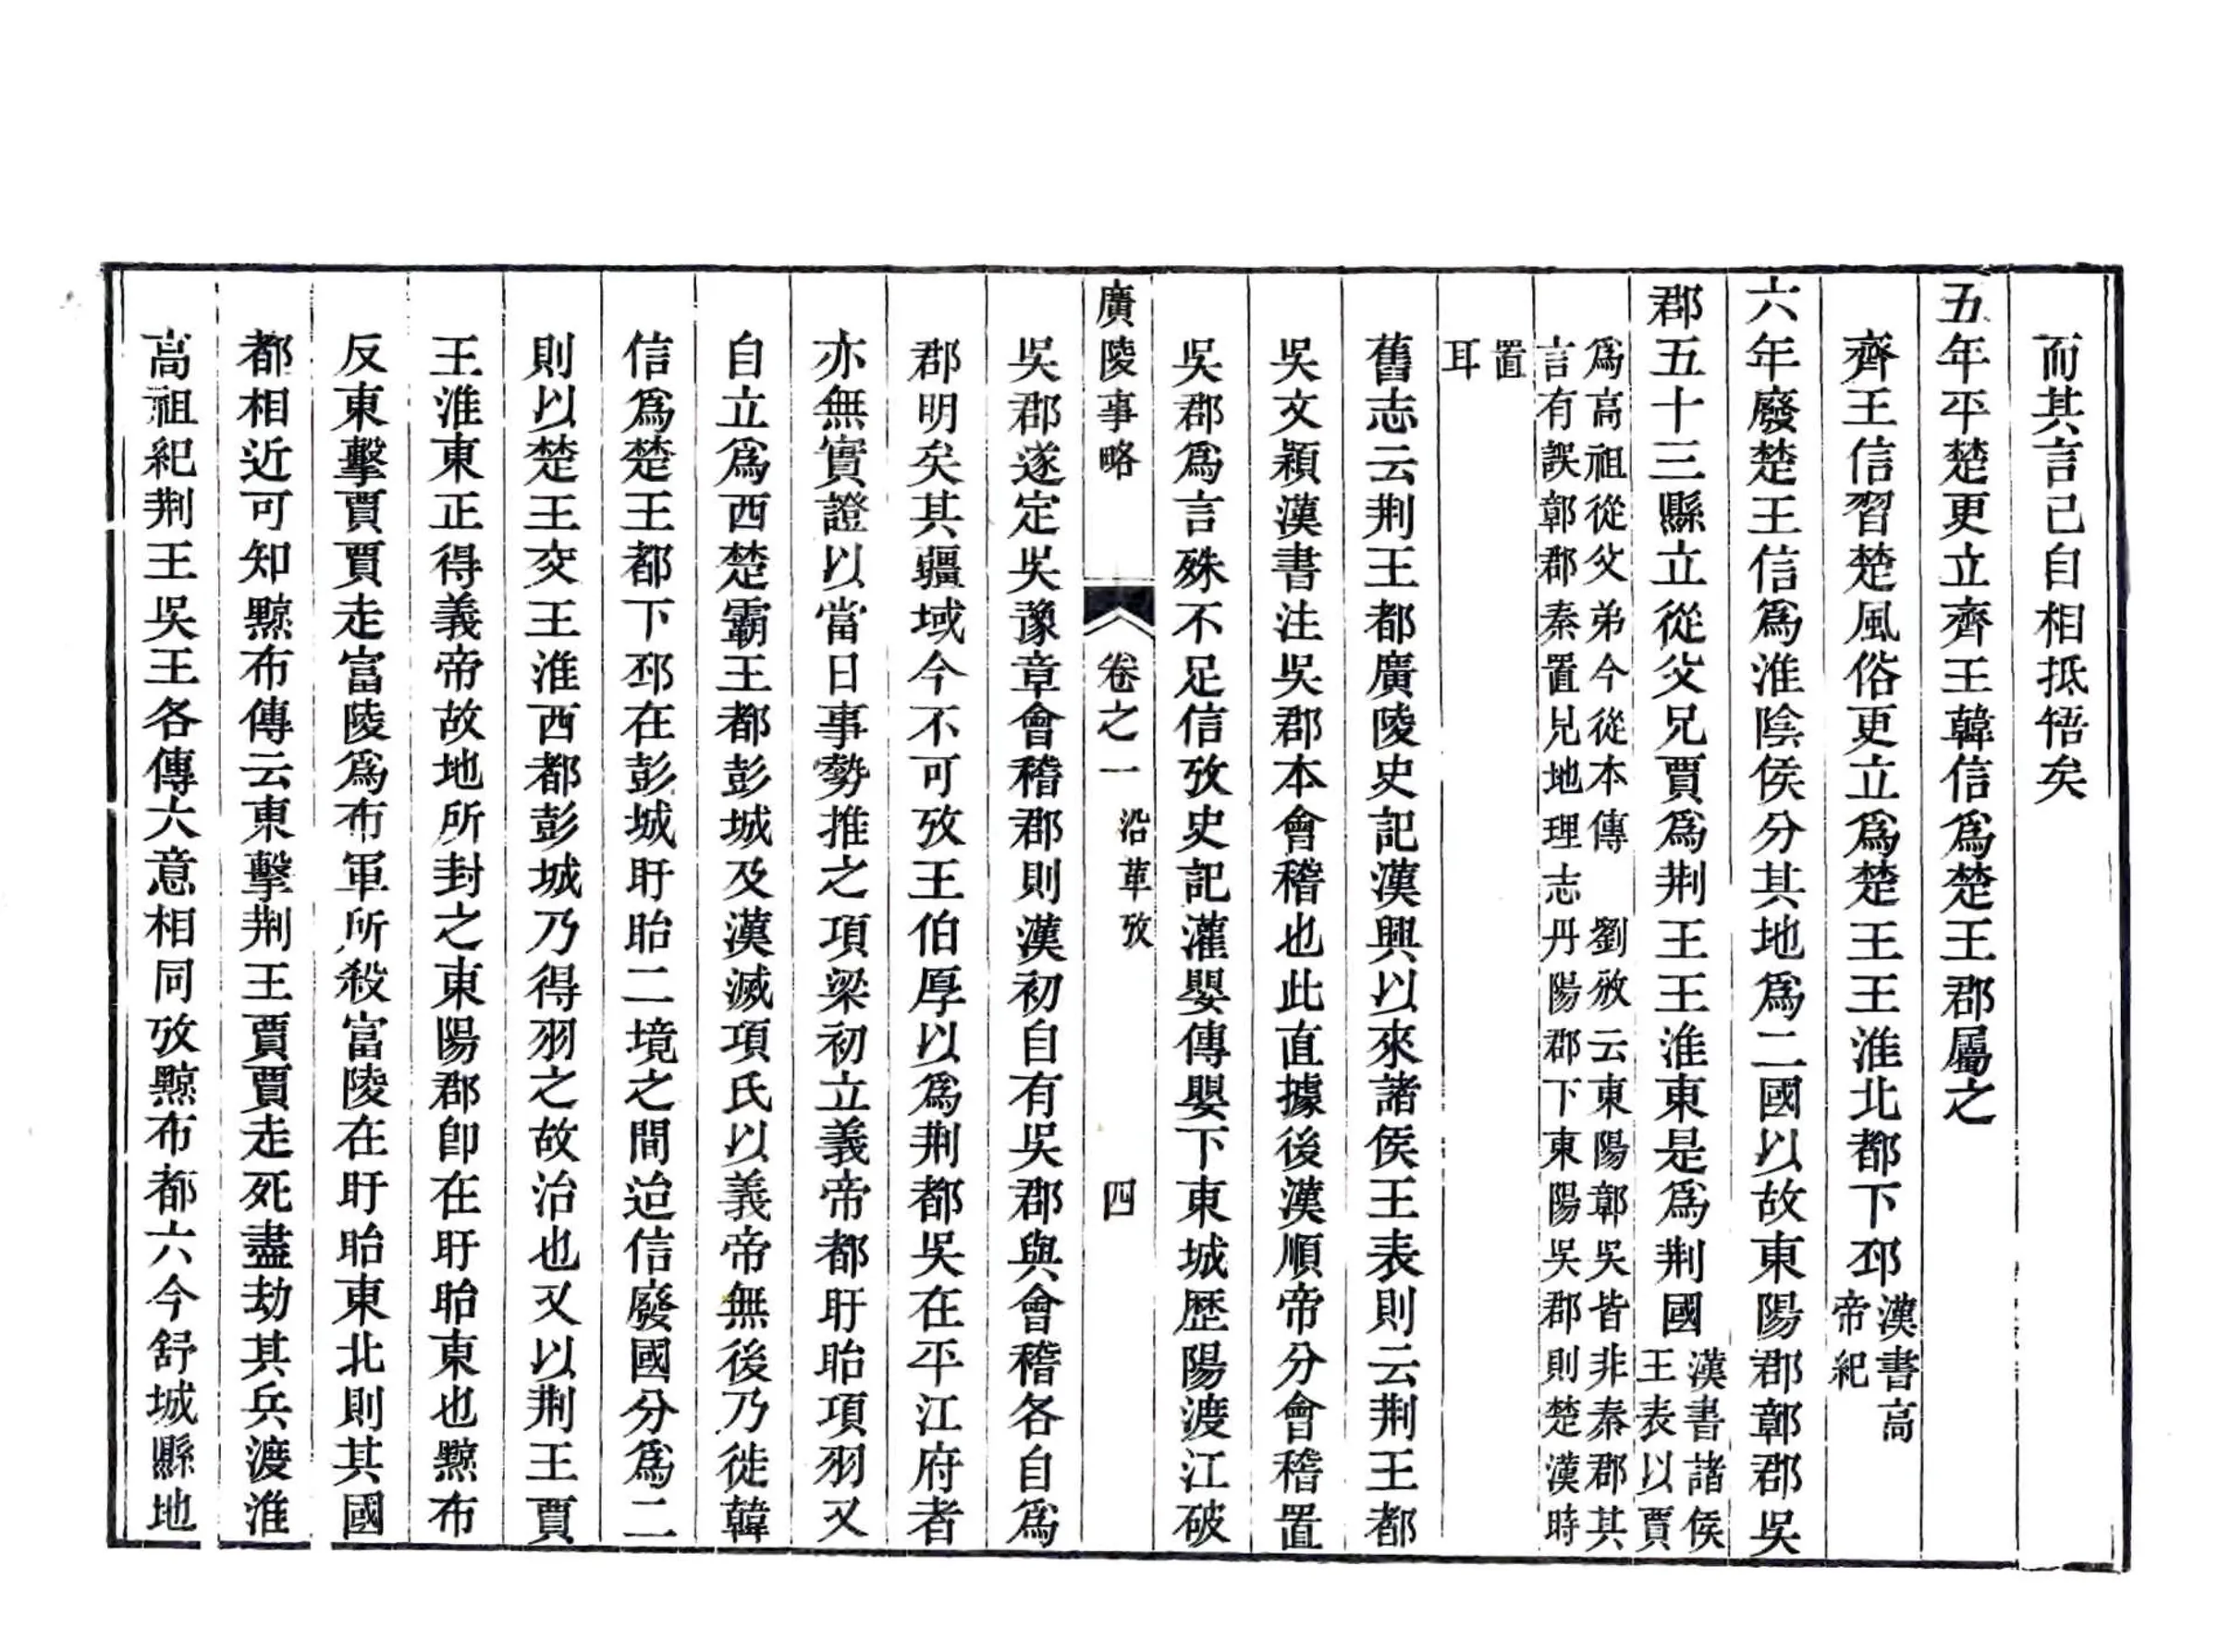 而其言已自相抵牾矣
五年平楚更立齊王韓信為楚王郡屬之
齊王信習楚風俗更立為楚王王淮北都下邳漢書高
帝紀
六年廢楚王信為淮陰侯分其地為二國以故東陽郡鄣郡吳
郡五十三縣立從父兄賈為荆王王淮東是為荆國漢書諸侯
王表以賈
為高祖從父弟今從本傳 劉攽云東陽鄣吳皆非秦郡其
言有誤鄣郡秦置見地理志 丹陽郡下東陽吳郡則楚漢時
置
耳
舊志云荆王都廣陵史記漢興以來諸侯王表則云荆王都
吳文穎漢書注吳郡本會稽也此直據後漢順帝分會稽置
吳郡為言殊不足信攷史記灌嬰傳嬰下東城歷陽渡江破
廣陵事略 卷之一 沿革攷 四
吳郡遂定吳豫章會稽郡則漢初自有吳郡與會稽各自為
郡明矣其疆域今不可攷王伯厚以為荆都吳在平江府者
亦無實證以當日事勢推之項梁初立義帝都盱眙項羽又
自立為西楚霸王都彭城及漢滅項氏以義帝無後乃徙韓
信為楚王都下邳在彭城盱眙二境之間迨信廢國分為二
則以楚王交王淮西都彭城乃得羽之故治也又以荆王賈
王淮東正得義帝故地所封之東陽郡卽在盱眙東也黥布
反東擊賈賈走富陵為布軍所殺富陵在盱眙東北則其國
都相近可知黥布傳云東擊荆王賈賈走死盡劫其兵渡淮
高祖紀荆王吳王各傳大意相同攷黥布都六今舒城縣地